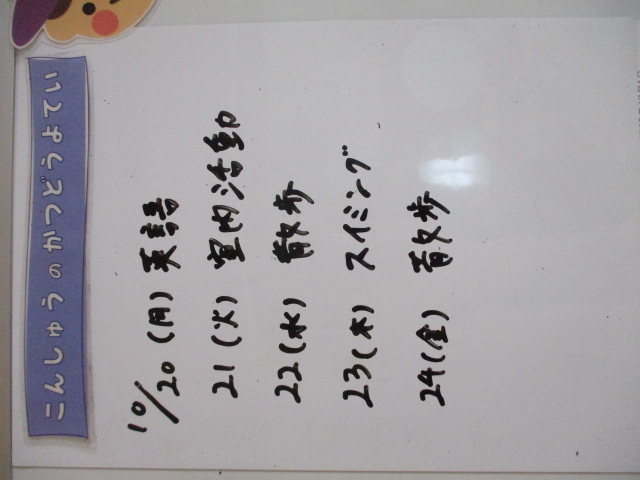 こんしゅうのかつどうよてい
10/20(月) 英語
21(火) 室内活動
22(水) 散歩
23(木) スイミング
24(金) 散歩